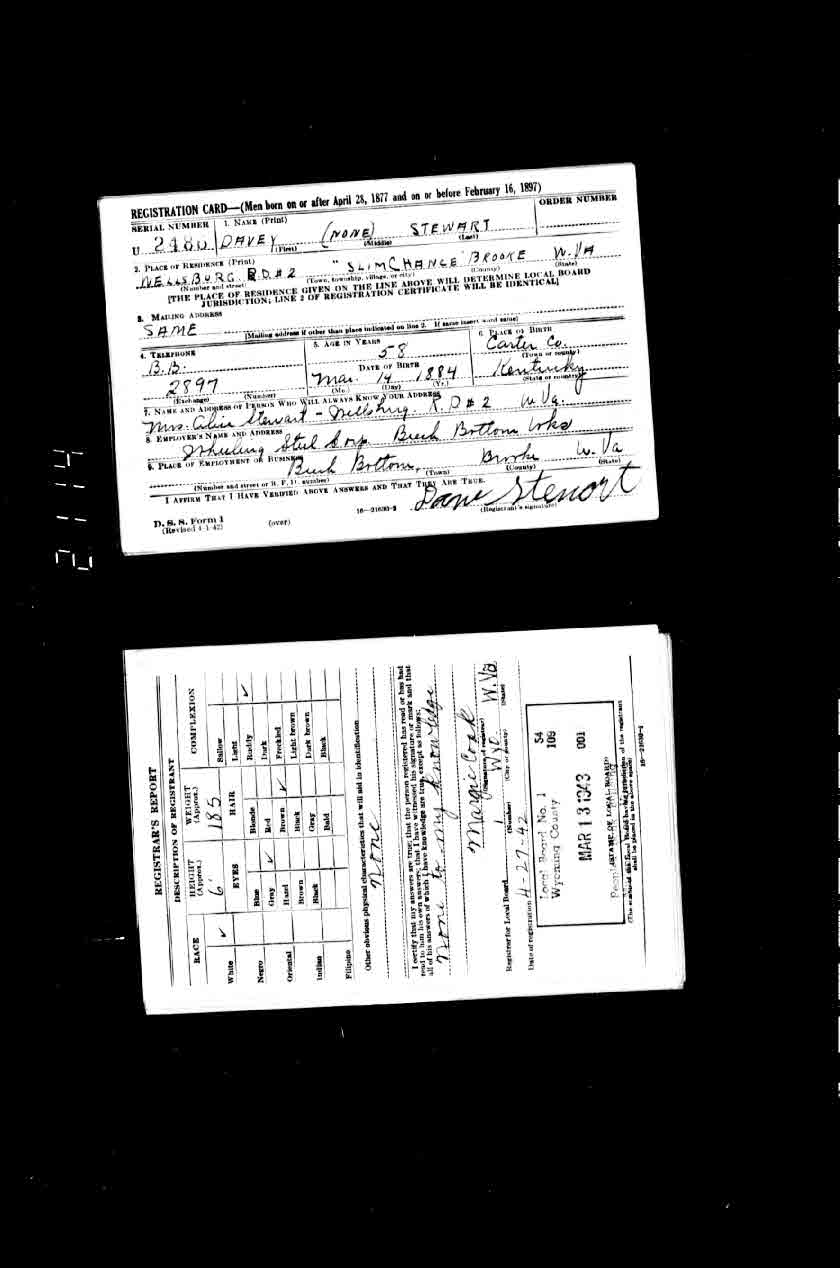 REGISTRATION CARD—(Men born on or after April 28, 1877 and on or before February 16, 1897)
SERIAL NUMBER 1. NAME (Print) ORDER NUMBER
U 2480 DAVEY (NONE) STEWART
(First) (Middle) (Last)
2. PLACE OF RESIDENCE (Print)
WELLSBURG R.D.#2 "SLIMCHANCE" BROOKE W.VA
(Number and street) (Town, township, village, or city) (County) (State)
[THE PLACE OF RESIDENCE GIVEN ON THE LINE ABOVE WILL DETERMINE LOCAL BOARD
JURISDICTION; LINE 2 OF REGISTRATION CERTIFICATE WILL BE IDENTICAL]
3. MAILING ADDRESS
SAME
[Mailing address if other than place indicated on line 2. If same insert word same]
4. TELEPHONE 5. AGE IN YEARS 6. PLACE OF BIRTH
B.B. 58 Carter Co.
DATE OF BIRTH (Town or county)
2897 Mar. 14 1884 Kentucky
(Exchange) (Number) (Mo.) (Day) (Yr.) (State or country)
7. NAME AND ADDRESS OF PERSON WHO WILL ALWAYS KNOW YOUR ADDRESS
Mrs. Stewart - Wellsburg R.D #2 W.Va.
8. EMPLOYER'S NAME AND ADDRESS
Wheeling Steel Corp. Beech Bottom Wks
9. PLACE OF EMPLOYMENT OR BUSINESS
Beech Bottom, Brooke W.Va
(Number and street or R. F. D. number) (Town) (County) (State)
I AFFIRM THAT I HAVE VERIFIED ABOVE ANSWERS AND THAT THEY ARE TRUE.
D. S. S. Form 1
(Revised 4-1-42) (over) 16—21630-2 (Registrant's signature)
REGISTRAR'S REPORT
DESCRIPTION OF REGISTRANT
RACE HEIGHT (Approx.) WEIGHT (Approx.) COMPLEXION
6' 185
White ✓ EYES HAIR Sallow
Light
Negro Blue Blonde Ruddy ✓
Gray ✓ Red Dark
Oriental Hazel Brown ✓ Freckled
Brown Black Light brown
Indian Black Gray Dark brown
Bald Black
Filipino
Other obvious physical characteristics that will aid in identification
None
I certify that my answers are true; that the person registered has read or has had
read to him his own answers; that I have witnessed his signature or mark and that
all of his answers of which I have knowledge are true, except as follows:
None to my knowledge
Margie Cook
(Signature of registrar)
Registrar for Local Board 1 Wyo W.Va
(Number) (City or county) (State)
Date of registration 4-27-42
54
109
Local Board No. 1
Wyoming County
MAR 13 1943 001
(STAMP OF LOCAL BOARD)
(The stamp of the Local Board having jurisdiction of the registrant
shall be placed in the above space)
16—21630-1